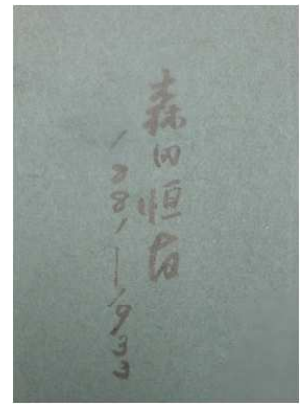 森田恒友
1881〜1933